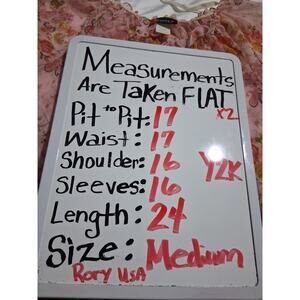 Measurements
Are Taken FLAT
Pit to Pit: 17 x2
Waist: 17
Shoulder: 16 Y2K
Sleeves: 16
Length: 24
Size: Medium
Rory USA